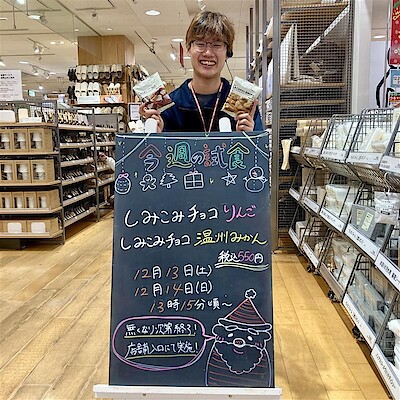 今週の試食
しみこみチョコ りんご
しみこみチョコ 温州みかん
税込550円
12月13日(土)
12月14日(日)
13時15分頃~
無くなり次第終了!
店舗入口にて実施!